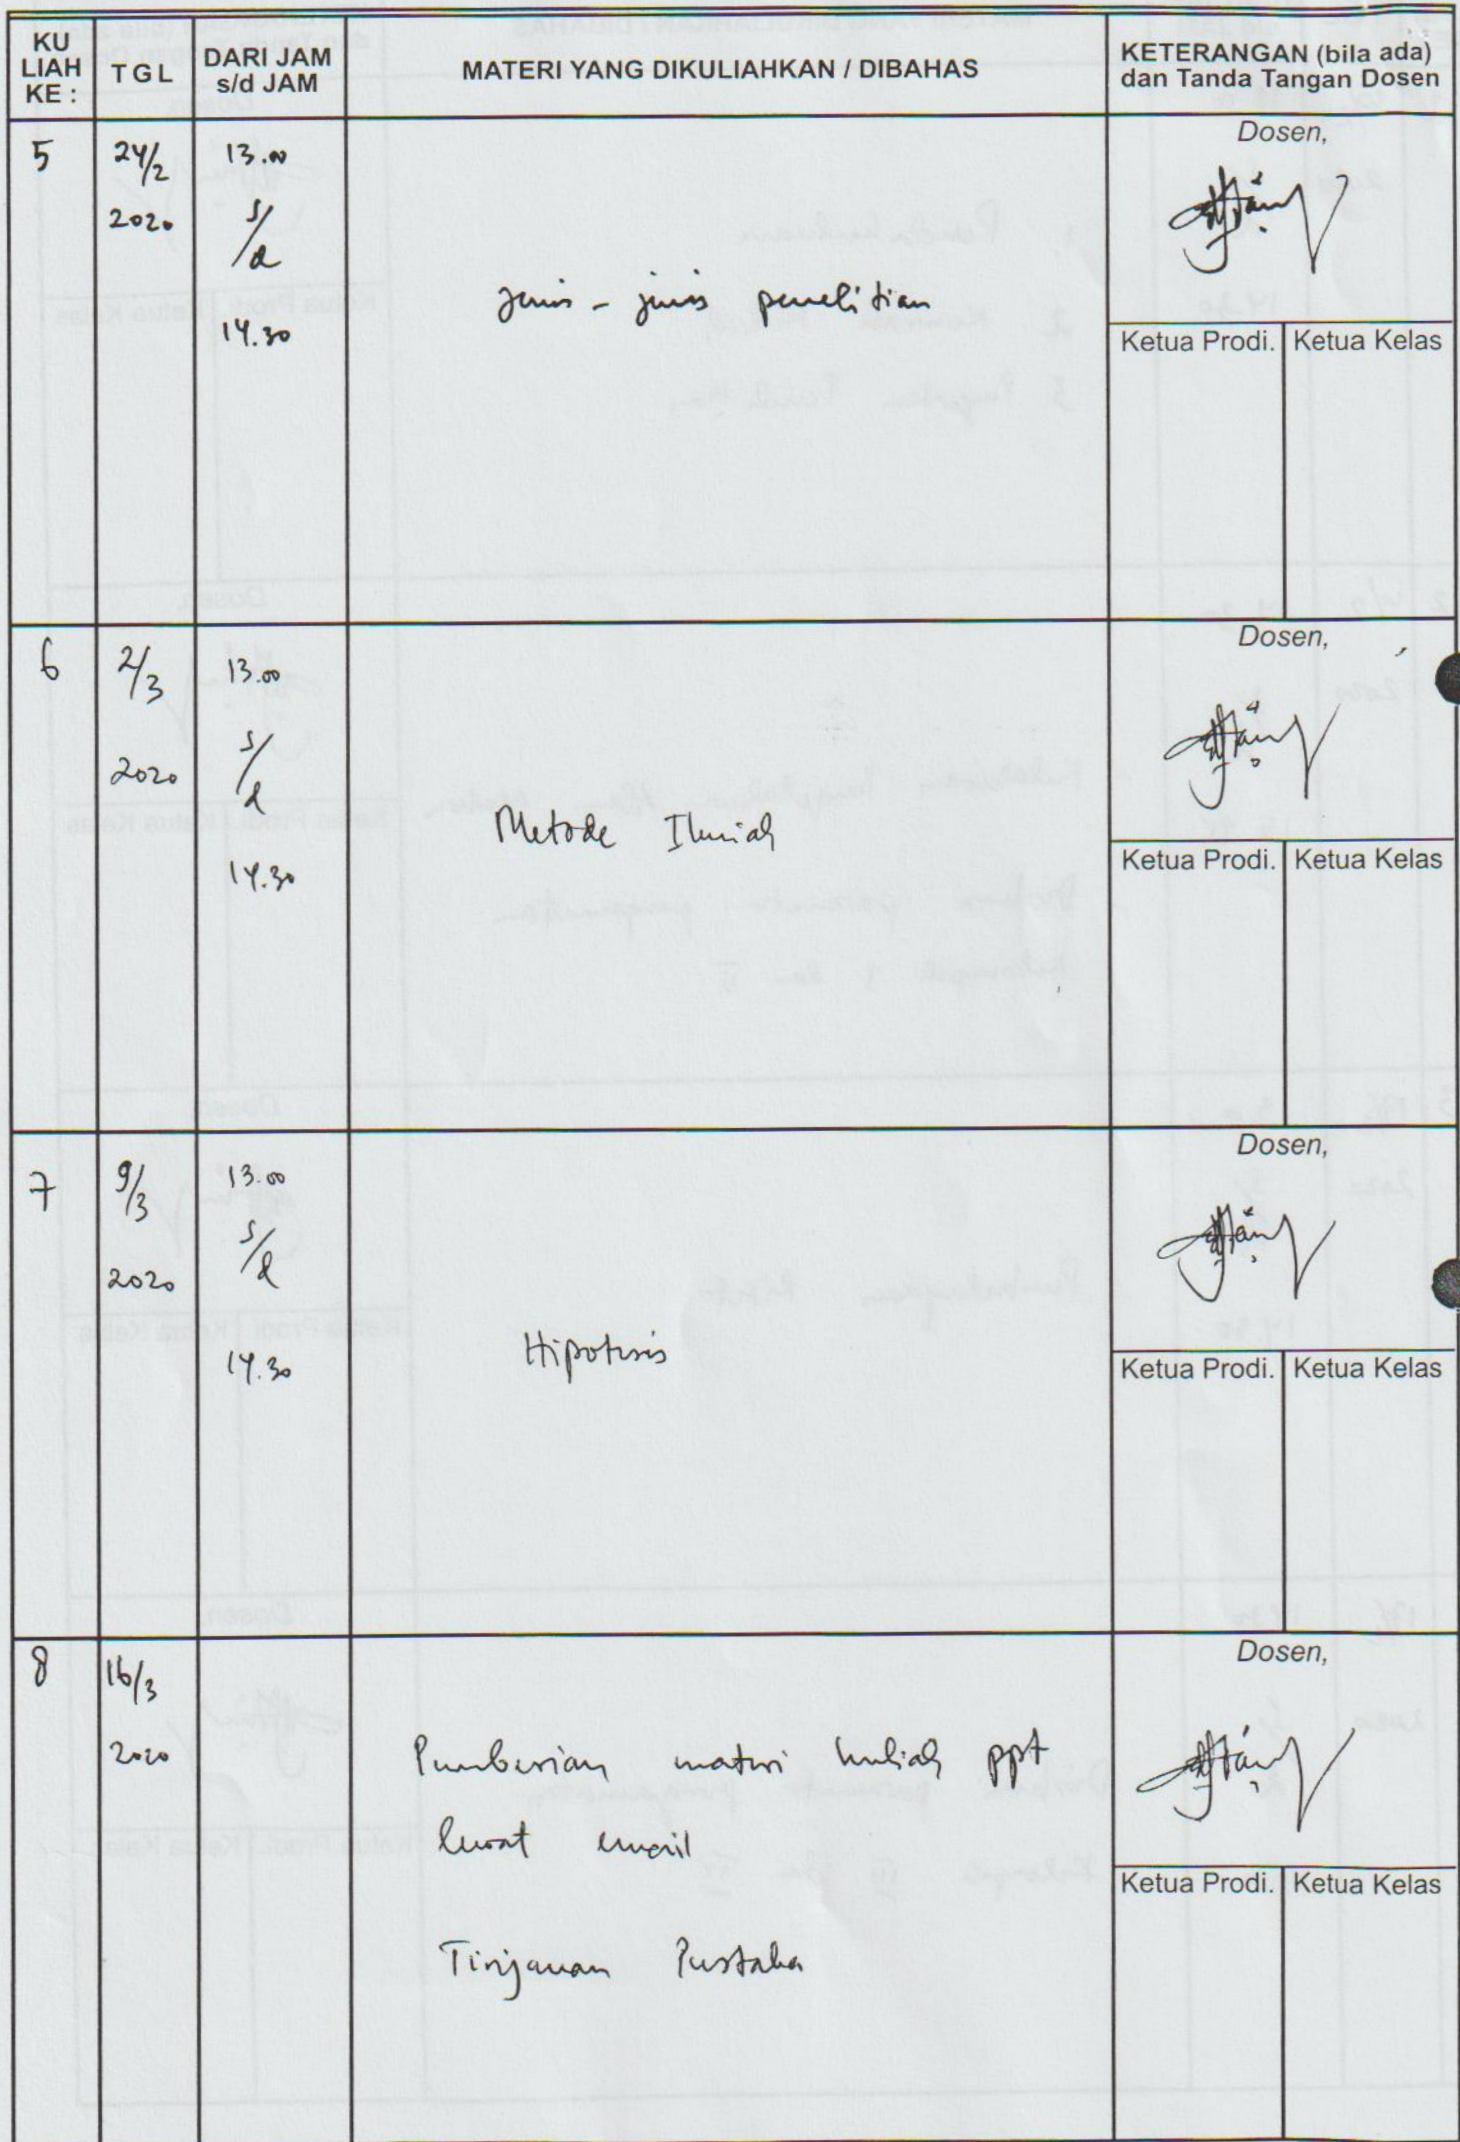 KU LIAH KE :
TGL
DARI JAM s/d JAM
MATERI YANG DIKULIAHKAN / DIBAHAS
KETERANGAN (bila ada)
dan Tanda Tangan Dosen
5
24/2
2020
13.00
s/d
14.30
Jenis - jenis penelitian
Dosen,
Ketua Prodi.
Ketua Kelas
6
2/3
2020
13.00
s/d
14.30
Metode Ilmiah
Dosen,
Ketua Prodi.
Ketua Kelas
7
9/3
2020
13.00
s/d
14.30
Hipotesis
Dosen,
Ketua Prodi.
Ketua Kelas
8
16/3
2020
Pemberian materi kuliah ppt
lewat email
Tinjauan Pustaka
Dosen,
Ketua Prodi.
Ketua Kelas